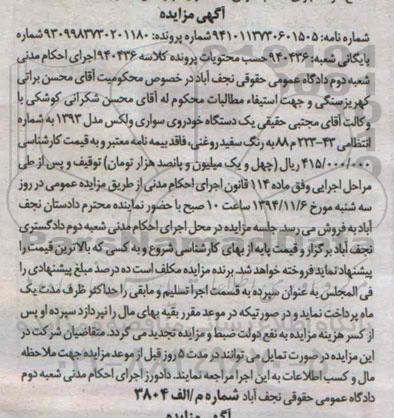 آگهی مزایده
شماره نامه: ۹۴۱۰۱۱۳۷۳۰۶۰۱۵۰۵ شماره پرونده: ۹۳۰۹۹۸۳۷۳۰۲۰۱۱۸۰ شماره
بایگانی شعبه: ۹۴۰۴۳۶ حسب محتویات پرونده کلاسه ۹۴۰۴۳۶ اجرای احکام مدنی
شعبه دوم دادگاه عمومی حقوقی نجف آباد در خصوص محکومیت آقای محسن براتی
کهریزسنگی و جهت استیفاء مطالبات محکوم له آقای محسن شکرانی کوشکی با
وکالت آقای مجتبی حقیقی یک دستگاه خودروی سواری ولکس مدل ۱۳۹۳ به شماره
انتظامی ۴۳-۲۲۳م۸۸ به رنگ سفید روغنی، فاقد بیمه نامه معتبر و به قیمت کارشناسی
۴۱۵/۰۰۰/۰۰۰ ریال (چهل و یک میلیون و پانصد هزار تومان) توقیف و پس از طی
مراحل اجرایی وفق ماده ۱۱۴ قانون اجرای احکام مدنی از طریق مزایده عمومی در روز
سه شنبه مورخ ۱۳۹۴/۱۱/۶ ساعت ۱۰ صبح با حضور نماینده محترم دادستان نجف
آباد به فروش می رسد. جلسه مزایده در محل اجرای احکام مدنی شعبه دوم دادگستری
نجف آباد برگزار و قیمت پایه از بهای کارشناسی شروع و به کسی که بالاترین قیمت را
پیشنهاد نماید فروخته خواهد شد. برنده مزایده مکلف است ده درصد مبلغ پیشنهادی را
فی المجلس به عنوان سپرده به قسمت اجرا تسلیم و مابقی را حداکثر ظرف مدت یک
ماه پرداخت نماید و در صورتیکه در موعد مقرر بقیه بهای مال را نپردازد سپرده او پس
از کسر هزینه مزایده به نفع دولت ضبط و مزایده تجدید می گردد. متقاضیان شرکت در
این مزایده در صورت تمایل می توانند در مدت ۵ روز قبل از موعد مزایده جهت ملاحظه
مال و کسب اطلاعات به این اجرا مراجعه نمایند. دادورز اجرای احکام مدنی شعبه دوم
دادگاه عمومی حقوقی نجف آباد شماره م/الف ۳۸۰۴
آگهی مزایده